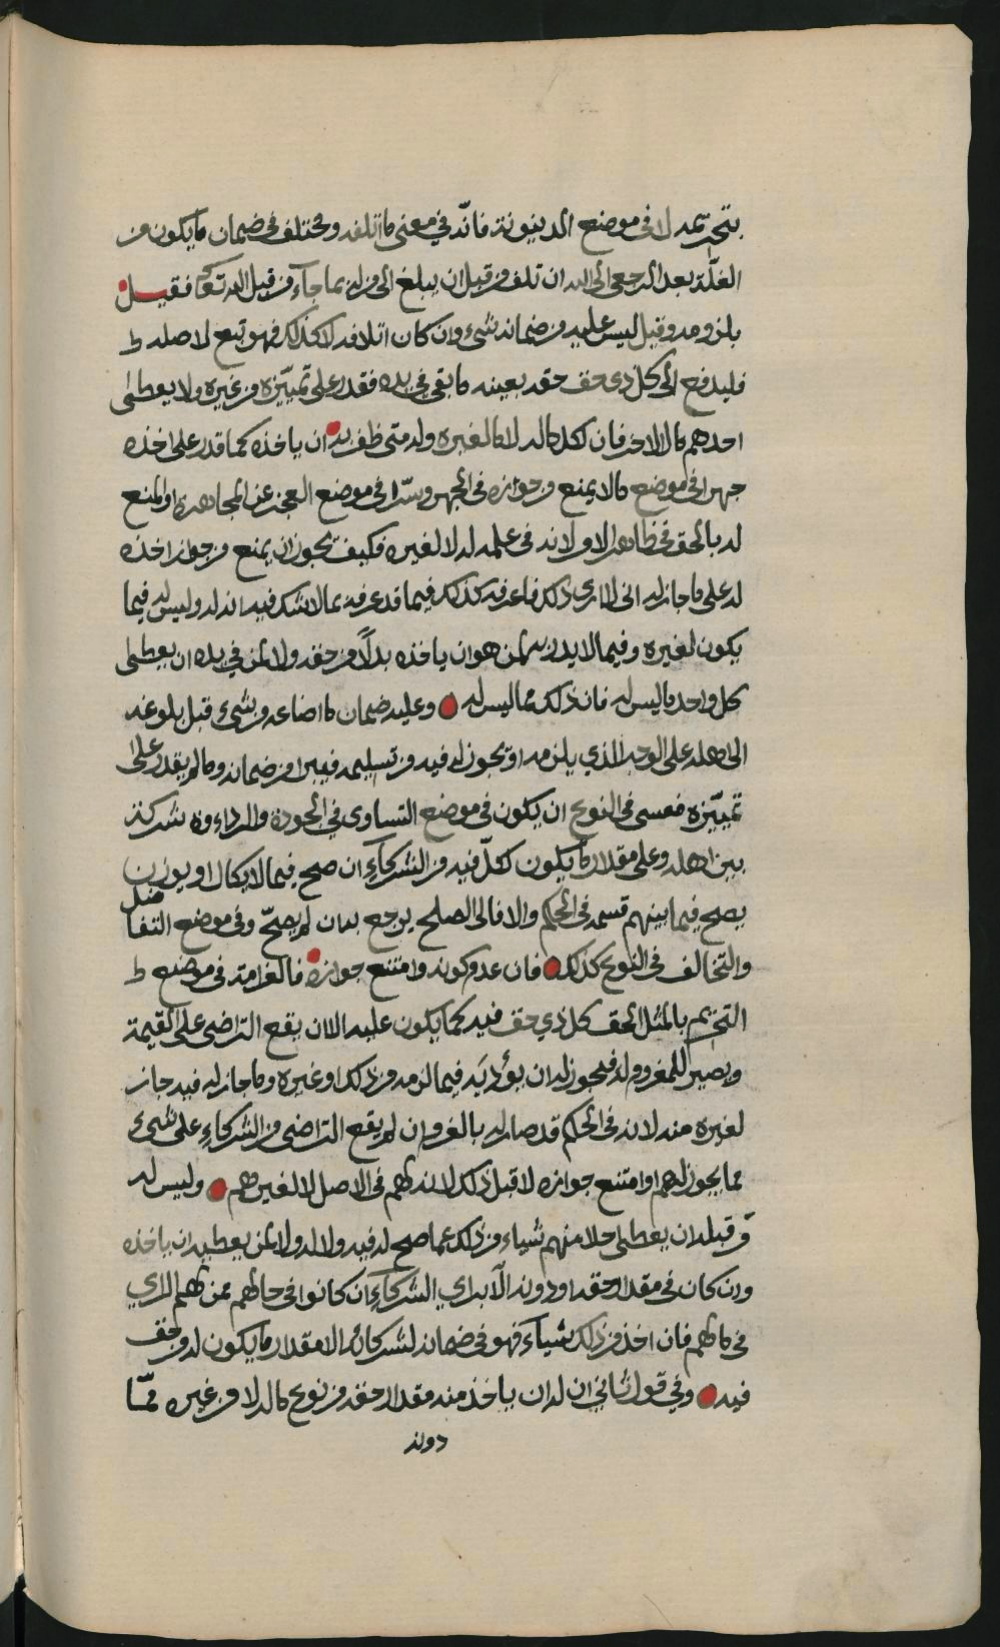 بتحريمه لا في موضع الدينونة فانّه في معنى ما اتلفه ومختلف في ضمان ما يكون من
الغلّة بعد الرجعى الى الله ان تلف من قبل ان يبلغ الى من له بما جاء من قبل الله تعالى فقيل
يلزومه وقيل ليس عليه من ضمانه شيء وان كان اتلافه لا كذلك فهو تبع لاصله
فليدفع الى كل ذي حق حقه بعينه ما بقي في يده فقدر على تمييزه من غيره ولا يعطى
احدهم مال الاخر فان لكل ماله لا مال غيره وله متى ظفر به ان ياخذه كما قدر على اخذه
جهرا في موضع مالا يمنع من جوازه في الجهر وسرّا في موضع العجز عن المجاهرة او المنع
له بالحق في ظاهر الامر لانه في علمه له لا لغيره فكيف يجوز ان يمنع من جواز اخذه
له على ما جاز له اني لا ارى ذلك فاعرفه كذلك فيما قد عرفه مما لا شك فيه انه له وليس له فيما
يكون لغيره وفيما لا يدريه لمن هو ان ياخذه بدلًا من حقه ولا لمن في يده ان يعطى
كل واحد ما ليس له فان ذلك مما ليس له وعليه ضمان ما اضاعه من شيء قبل بلوغه
الى اهله على الوجه الذي يلزمه او يجوز له فيه من تسليمه فيبرا من ضمانه وما لم يقدر على
تمييزه فعسى في النوع ان يكون في موضع التساوى في الجودة والرداءة شركة
بين اهله وعلى مقدار ما يكون لكلّ فيه من الشركآء ان صح فيما لا يكال او يوزن
يصح فيما بينهم قسمه في الحكم والا فالى الصلح يرجع به ان لم يصحّ وفي موضع التفاضل
والتخالف في النوع كذلك فان عدم كونه وامتنع جوازه فالغرامة في موضع
التحريم بالمثل لحق كل ذي حق فيه كما يكون عليه الا ان يقع التراضي على القيمة
ويصير للمغروم له فيجوز له ان يؤديَه فيما لزمه من ذلك او غيره وما جاز له فيه جاز
لغيره منه لانه في الحكم قد صار له بالغرم وان لم يقع التراضي من الشركاء على شيء
مما يجوز لهم او امتنع جوازه لا قبل ذلك لانه لهم في الاصل لا لغيرهم وليس له
من قبله ان يعطى احدا منهم شياء من ذلك عما صح له فيه ولا له ولا لمن يعطيه ان ياخذه
وان كان في مقدار حقه او دونه الّا براي الشركآء ان كانوا في حالهم ممن لهم الراي
في مالهم فان اخذ من ذلك شياء فهو في ضمانه لشركائه الا مقدار ما يكون له من حق
فيه وفي قول ثاني ان له ان ياخذ منه مقدار حقه من نوع ماله لا من غيره ممّا
دونه